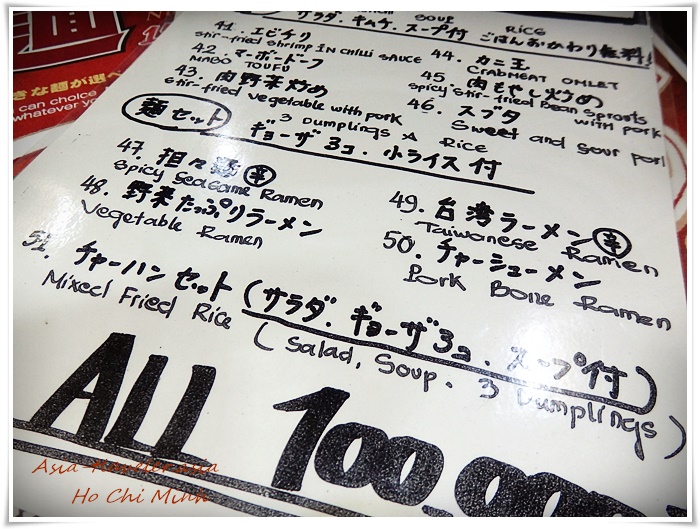 SOUP RICE
サラダ. キムチ. スープ付 ごはんおかわり無料!
41. エビチリ
Stir-fried Shrimp IN CHILLI SAUCE
42. マーボードーフ
MABO TOUFU
43. 肉野菜炒め
Stir-fried vegetable with pork
44. カニ玉
CRABMEAT OMLET
45 肉もやし炒め
Spicy Stir-fried Bean Sprouts with pork
46. スブタ
Sweet and Sour pork
麺セット ギョーザ3コ. 小ライス付
3 Dumplings & Rice
47. 担々麺 辛
Spicy Seasame Ramen
48. 野菜たっぷりラーメン
Vegetable Ramen
49. 台湾ラーメン 辛
Taiwanese Ramen
50. チャーシューメン
Pork Bone Ramen
51. チャーハンセット (サラダ. ギョーザ3コ. スープ付)
Mixed Fried Rice (Salad, Soup. 3 Dumplings)
ALL 100.00
きな麺が選べ
can choice
whatever you
Ho Chi Minh